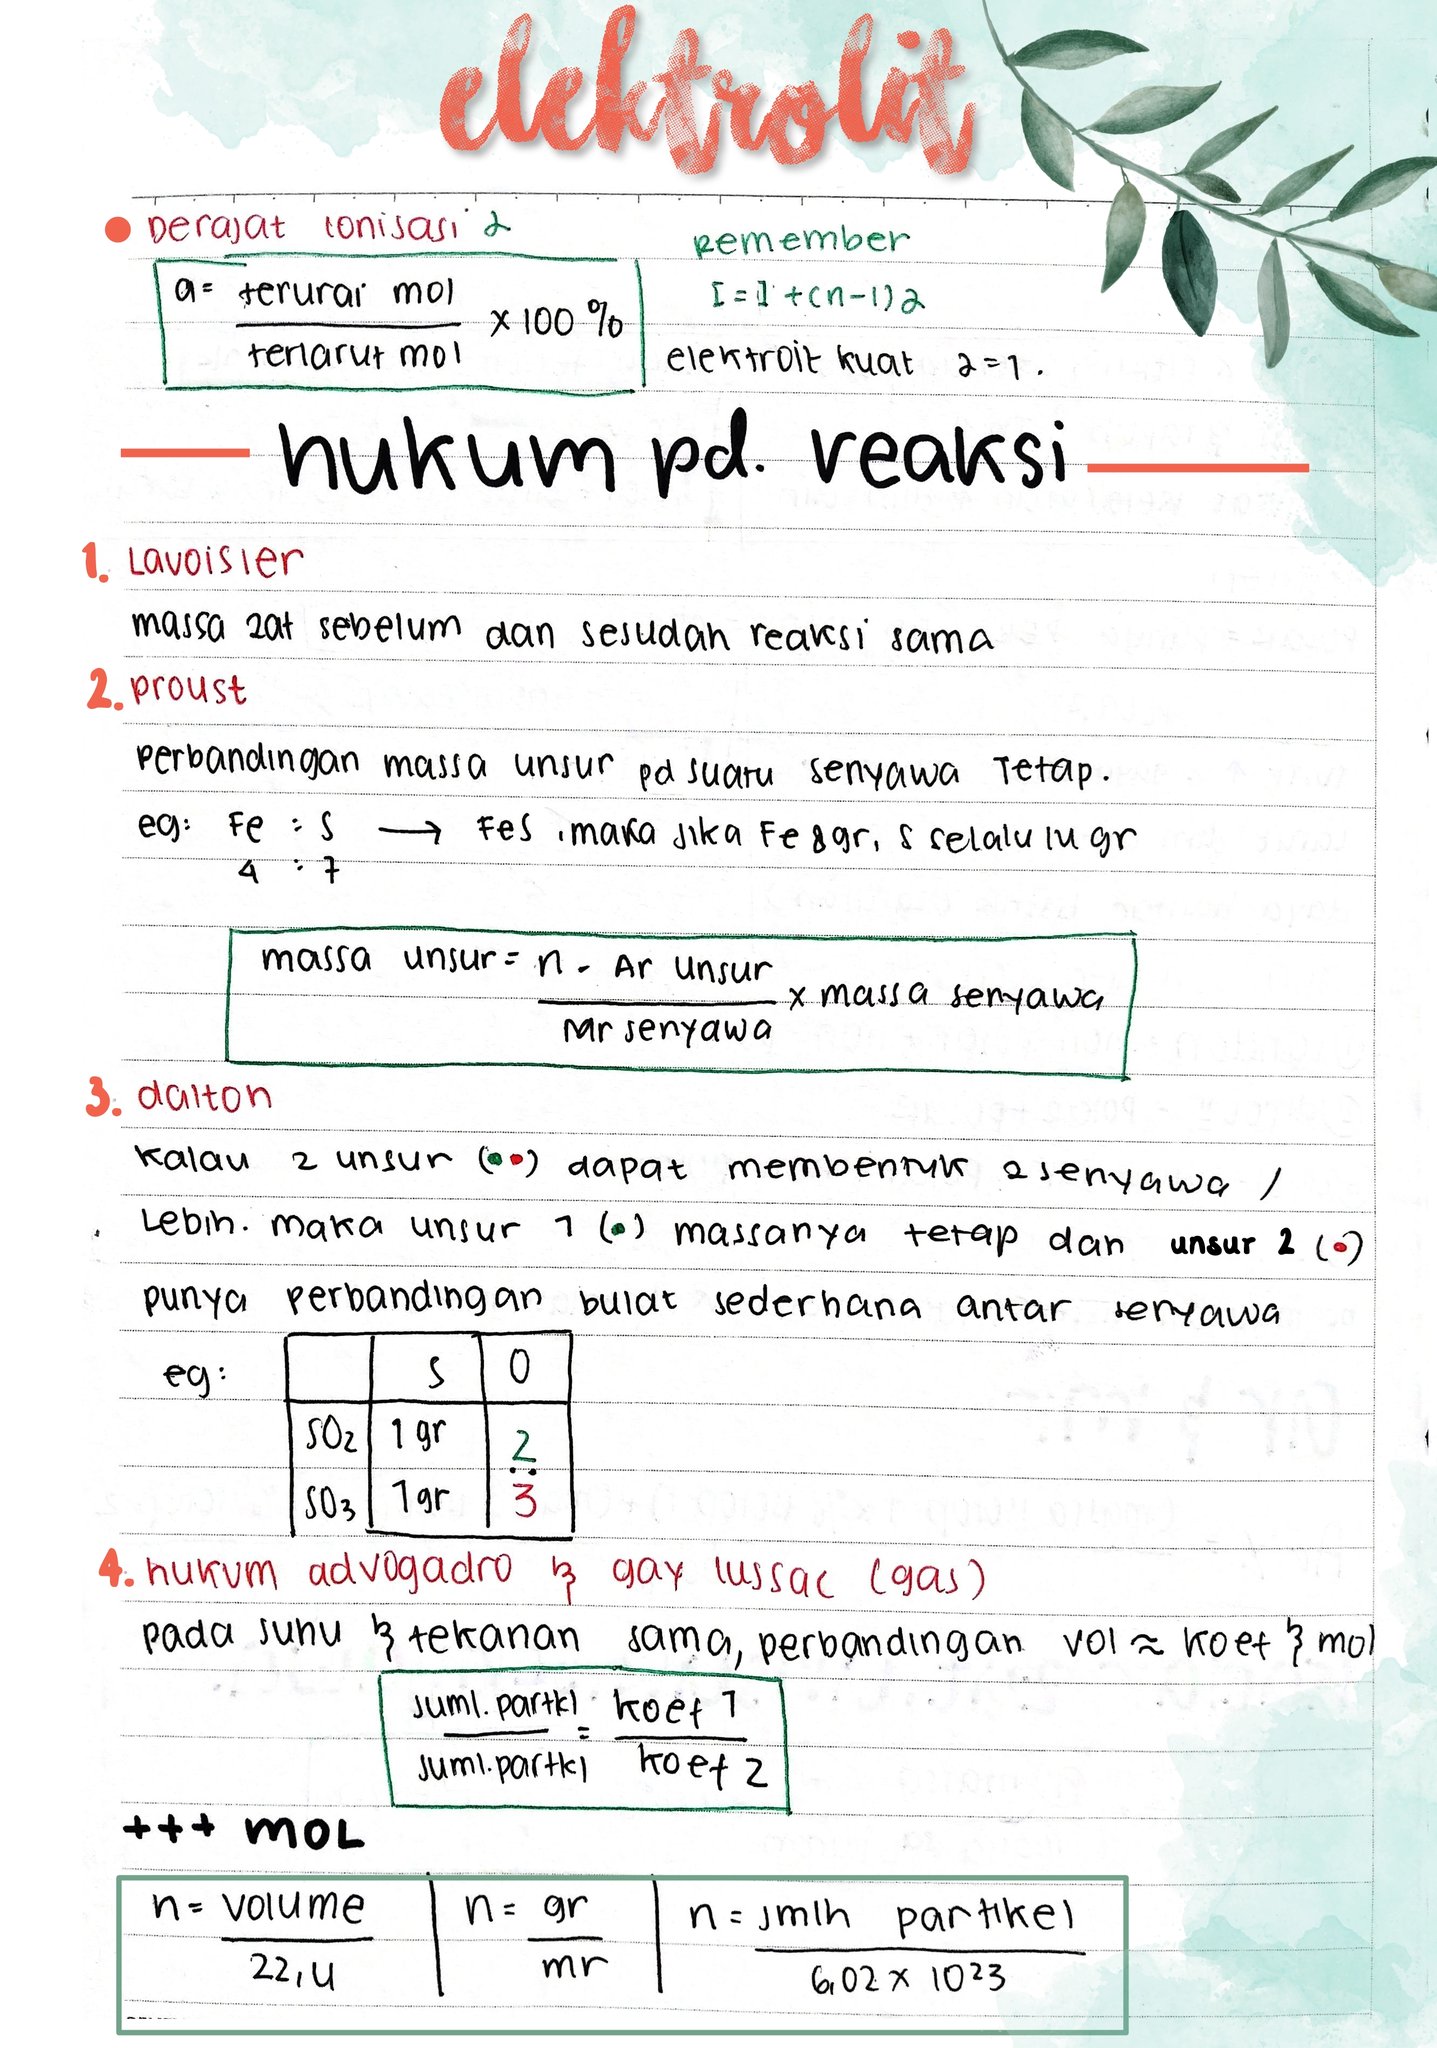 elektrolit
Derajat ionisasi α
a = terurai mol
terlarut mol
× 100 %
Remember
i = 1 + (n-1) α
elektroit kuat α = 1.
hukum pd. reaksi
1. Lavoisier
massa zat sebelum dan sesudah reaksi sama
2. proust
perbandingan massa unsur pd suatu senyawa Tetap.
eg: Fe : S → FeS , maka jika Fe 8gr, S selalu 14 gr
4 : 7
massa unsur = n . Ar unsur
Mr senyawa
× massa senyawa
3. dalton
Kalau 2 unsur (••) dapat membentuk 2 senyawa /
Lebih. maka unsur 1 (•) massanya tetap dan unsur 2 (•)
punya perbandingan bulat sederhana antar senyawa
eg:
S O
SO2 1 gr 2
SO3 1 gr 3
4. hukum advogadro & gay lussac (gas)
pada suhu & tekanan sama, perbandingan vol ≈ koef & mol
juml. partkl = koef 1
juml. partkl koef 2
+++ MOL
n = volume
22,4
n = gr
mr
n = jmlh partikel
6,02 × 10 23